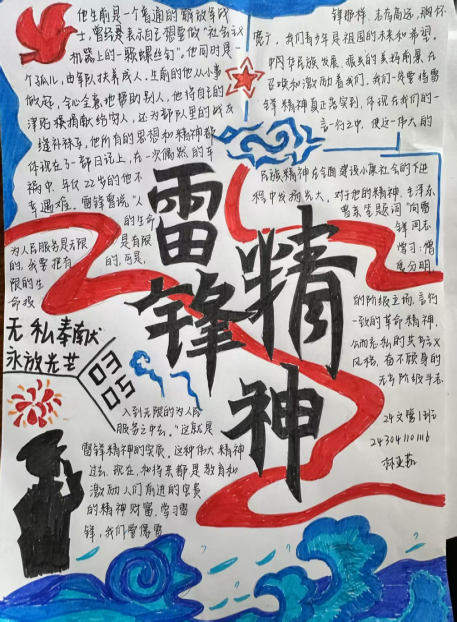 他生前是一个普通的解放军战
士，曾经表示自己想要做“社会主义
机器上的一颗螺丝钉”。他同时是一
个孤儿，由军队扶养成人，生前的他从小事
做起，全心全意地帮助别人，他将自己的
津贴积攒捐献给穷人，还为部队里的战友
缝补袜子，他所有的思想和精神都
体现在了一部日记上，在一次偶然的车
祸中，年仅22岁的他不
幸遇难。雷锋曾说“人
的生命
是有限
的，可是，
为人民服务是无限
的，我要把有
限的生
命投
雷锋精神
无私奉献
永放光芒
03
05
入到无限的为人民
服务之中去。”这就是
雷锋精神的实质。这种伟大精神
过去、现在、和将来都是教育和
激励人们前进的宝贵
的精神财富。学习雷
锋，我们要像雷
锋那样，志存高远，胸怀
宽广，我们青少年是祖国的未来和希望，
中华民族发展、振兴的美好前景在
召唤和激励着我们，我们一定要将雷
锋精神真正落实到、体现在我们的一
言一行之中，使这一伟大的
民族精神在全面建设小康社会的
程中发扬光大。对于他的精神，毛泽东
曾亲笔题词“向雷
锋同志
学习”，憎
爱分明
的阶级立场，言行
一致的革命精神，
公而忘私的共产主义
风格，奋不顾身的
无产阶级斗志
24文管1班
24304110116